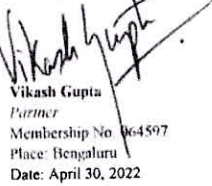 Vikash Gupta
Vikash Gupta
Partner
Membership No. 064597
Place: Bengaluru
Date: April 30, 2022